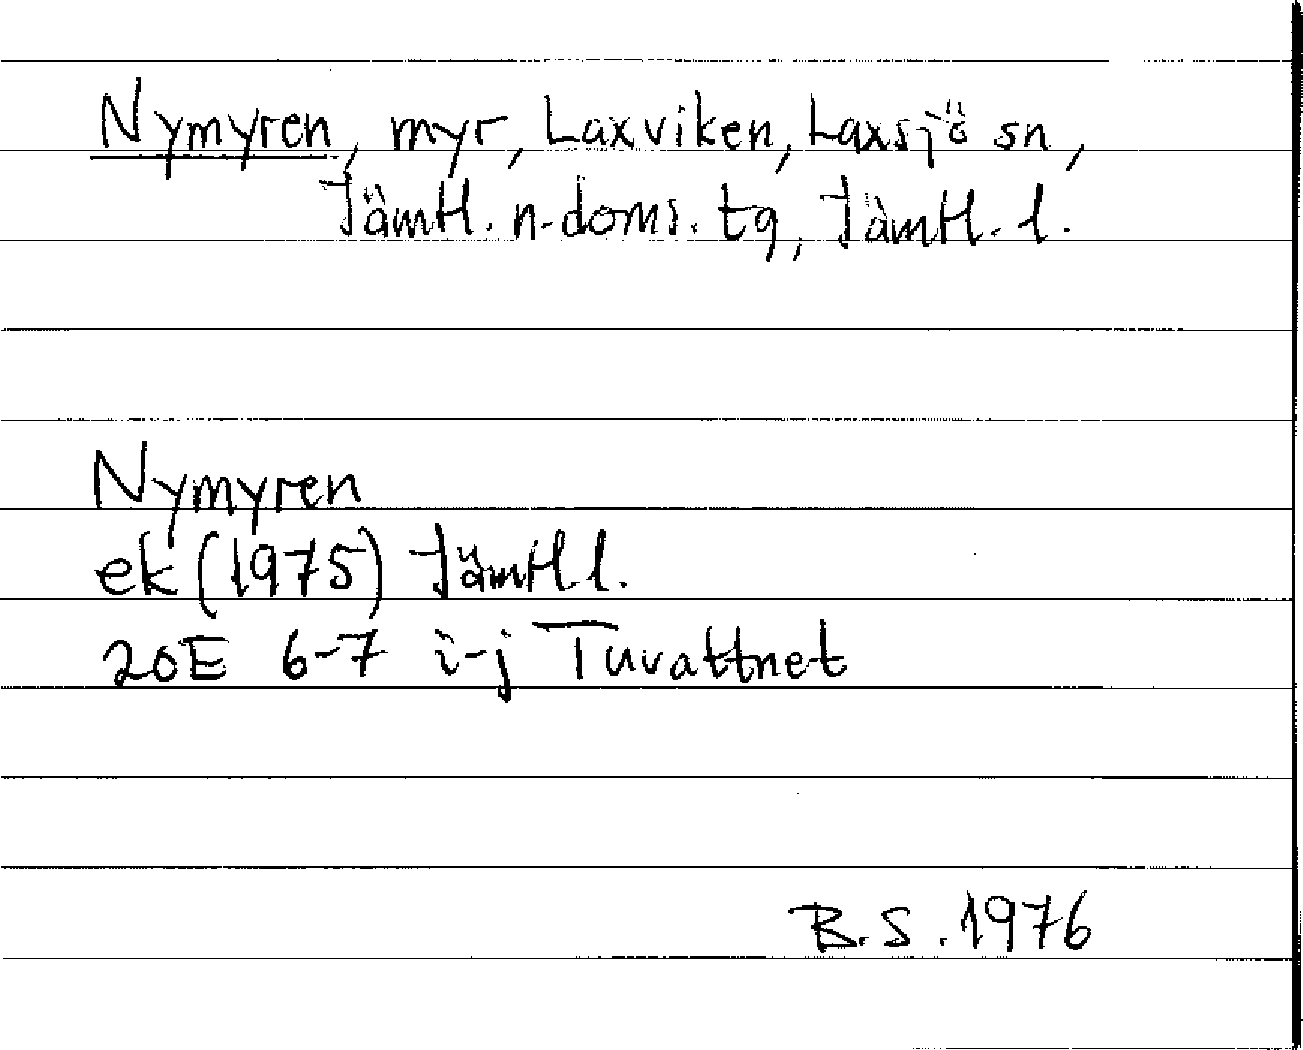 Nymyren, myr, Laxviken, Laxsjö sn,
Jämtl. n. doms. tg, Jämtl. l.
Nymyren
ek (1975) Jämtl. l.
20E 6-7 i-j Tuvattnet
B.S. 1976